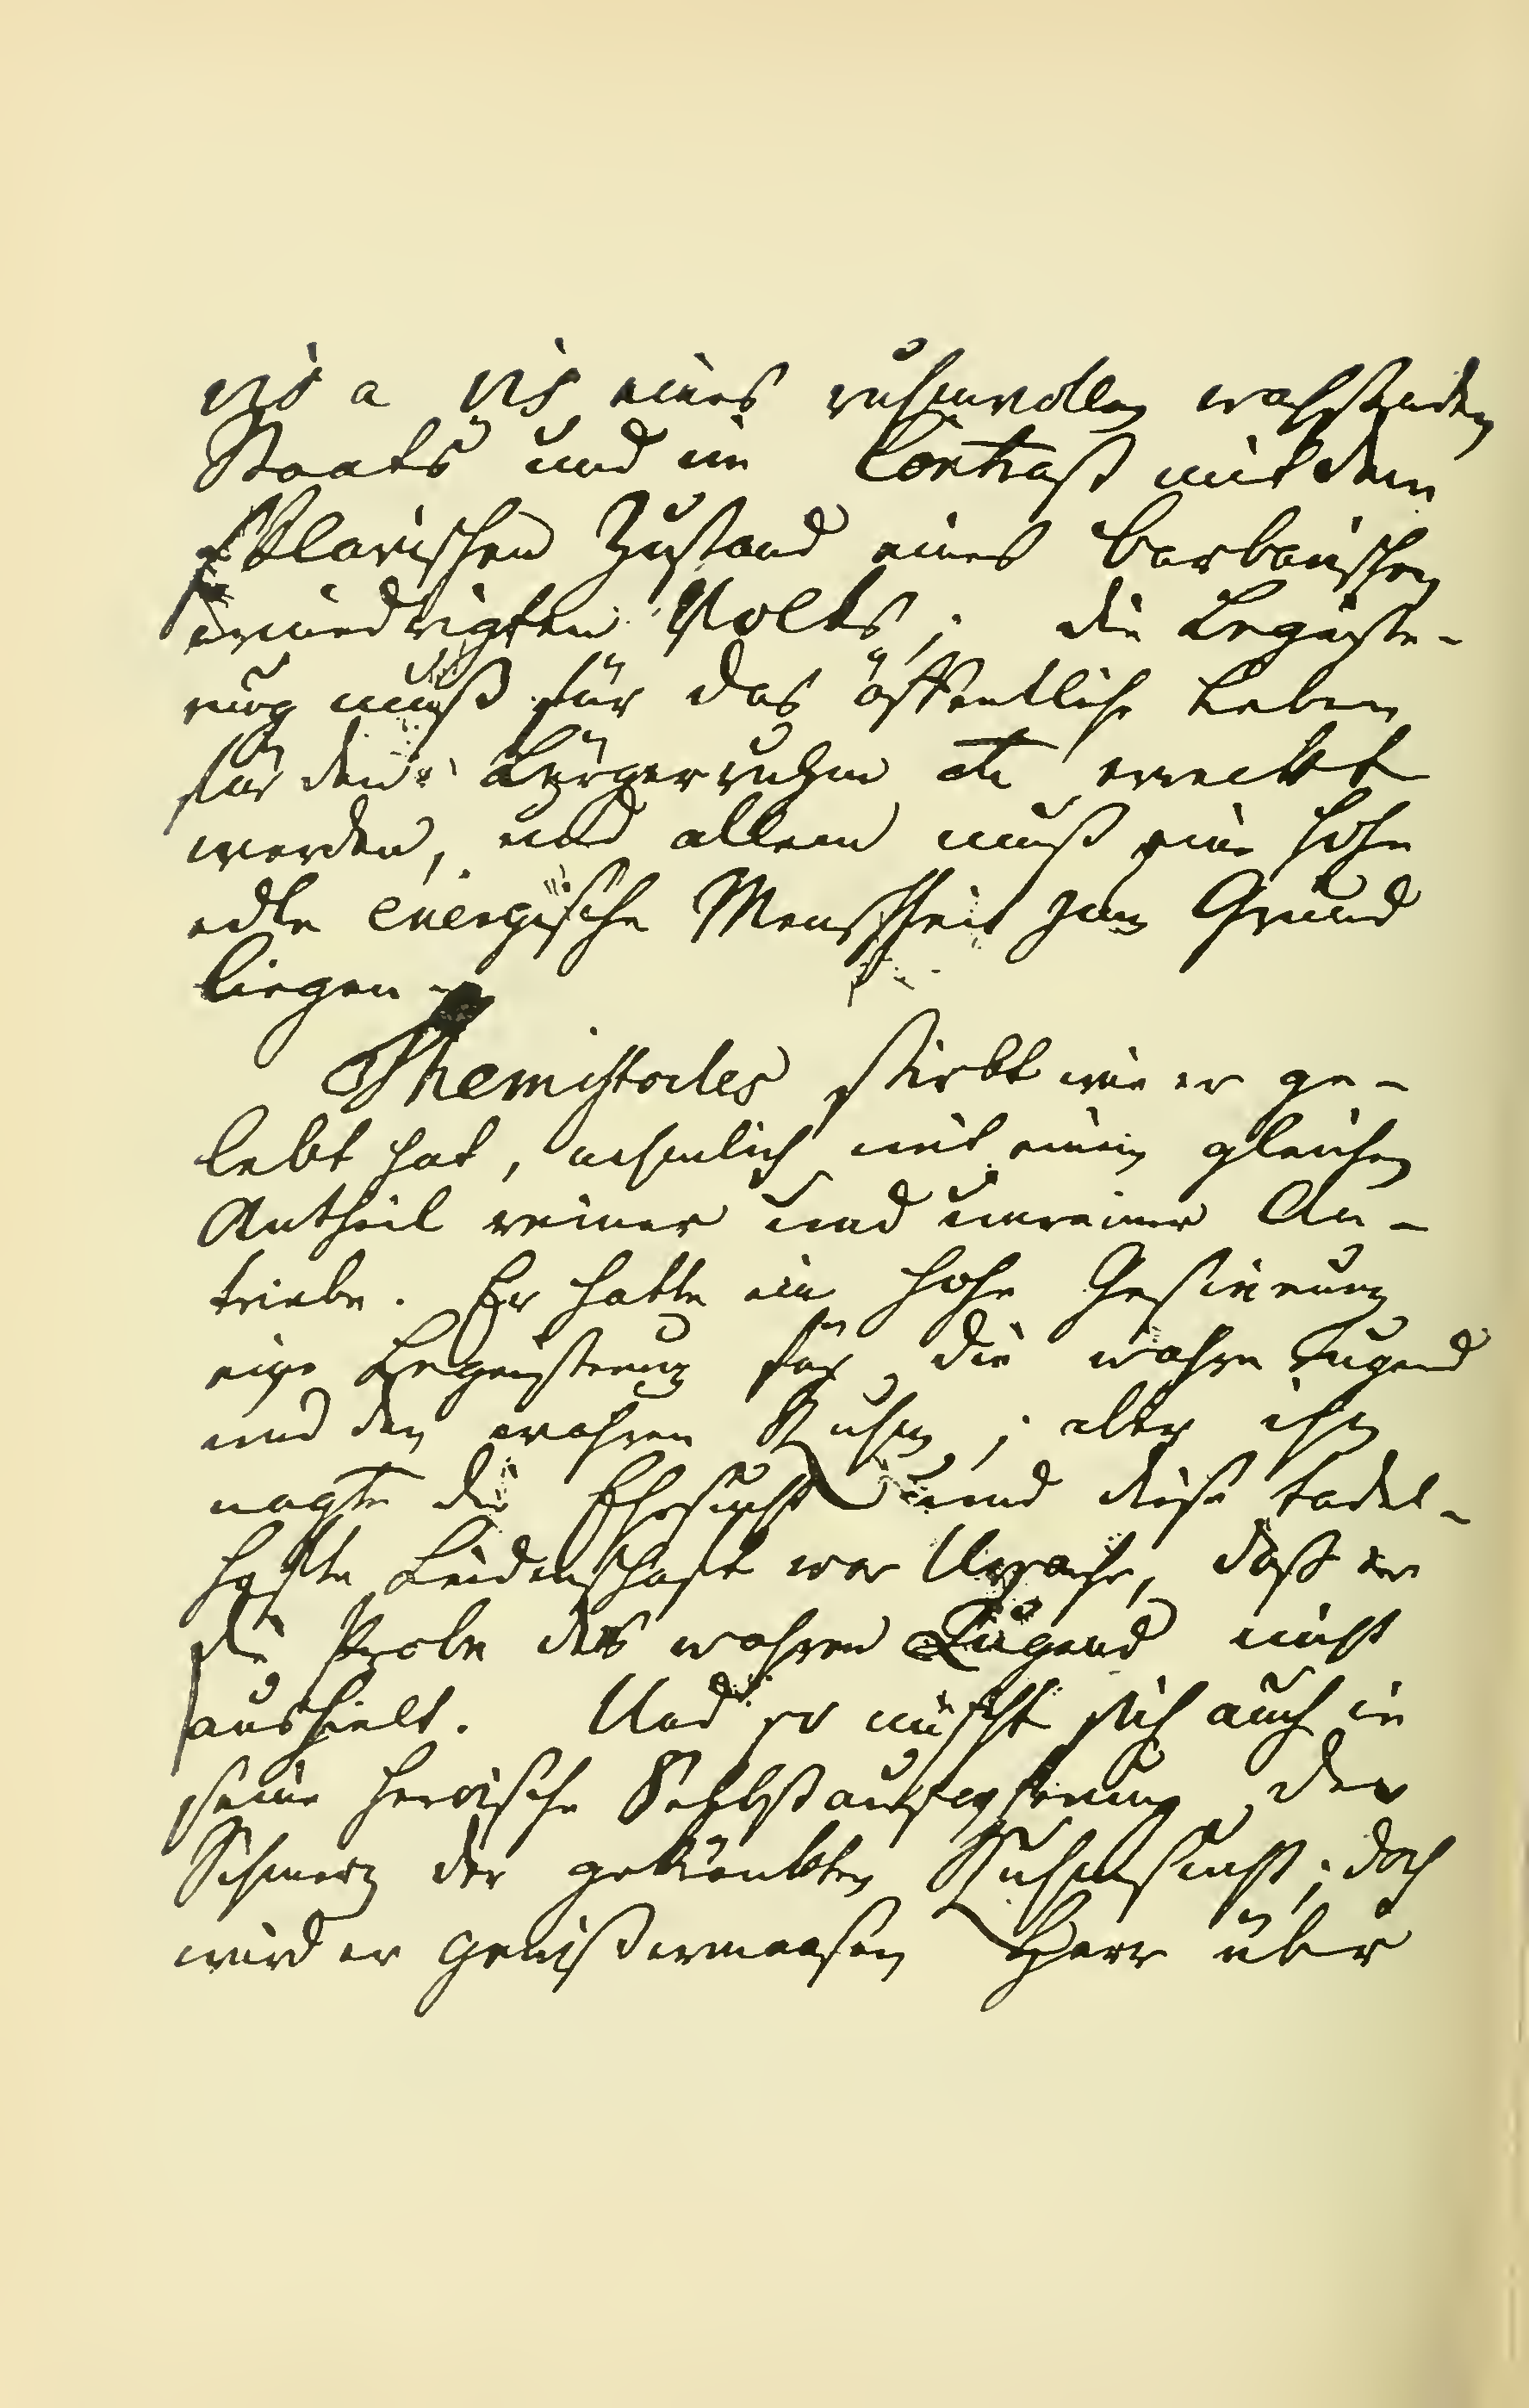 vis a vis eines ruhmvollen wachsenden
Staats und im Contrast mit dem
sklavischen Zustand eines barbarischen
erniedrigten Volks; die Begeiste-
rung muß für das öffentliche Leben
für den Bürgerruhm etc erweckt
werden, und allem muß eine hohe
edle energische Menschheit zum Grund
liegen.
Themistocles stirbt wie er ge-
lebt hat, nehmlich mit einem gleichen
Antheil reiner und unreiner An-
triebe. Er hatte eine hohe Gesinnung
eine Begeisterung für die wahre Tugend
und den wahren Ruhm; aber ihn
nagte die Ehrsucht und diese tadel-
hafte Leidenschaft war Ursache, daß er
die Probe der wahren Tugend nicht
aushielt. Und so mischt sich auch in
seine heroische Selbstaufopferung der
Schmerz der gekränkten Ruhmsucht; doch
wird er gewißermaasen Herr über